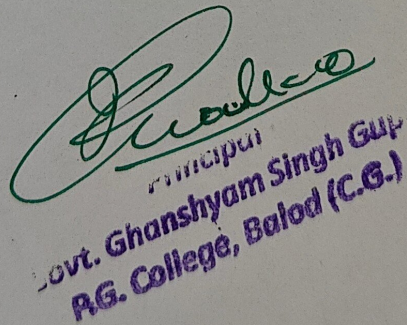 Principal
Govt. Ghanshyam Singh Gup
P.G. College, Balod (C.G.)